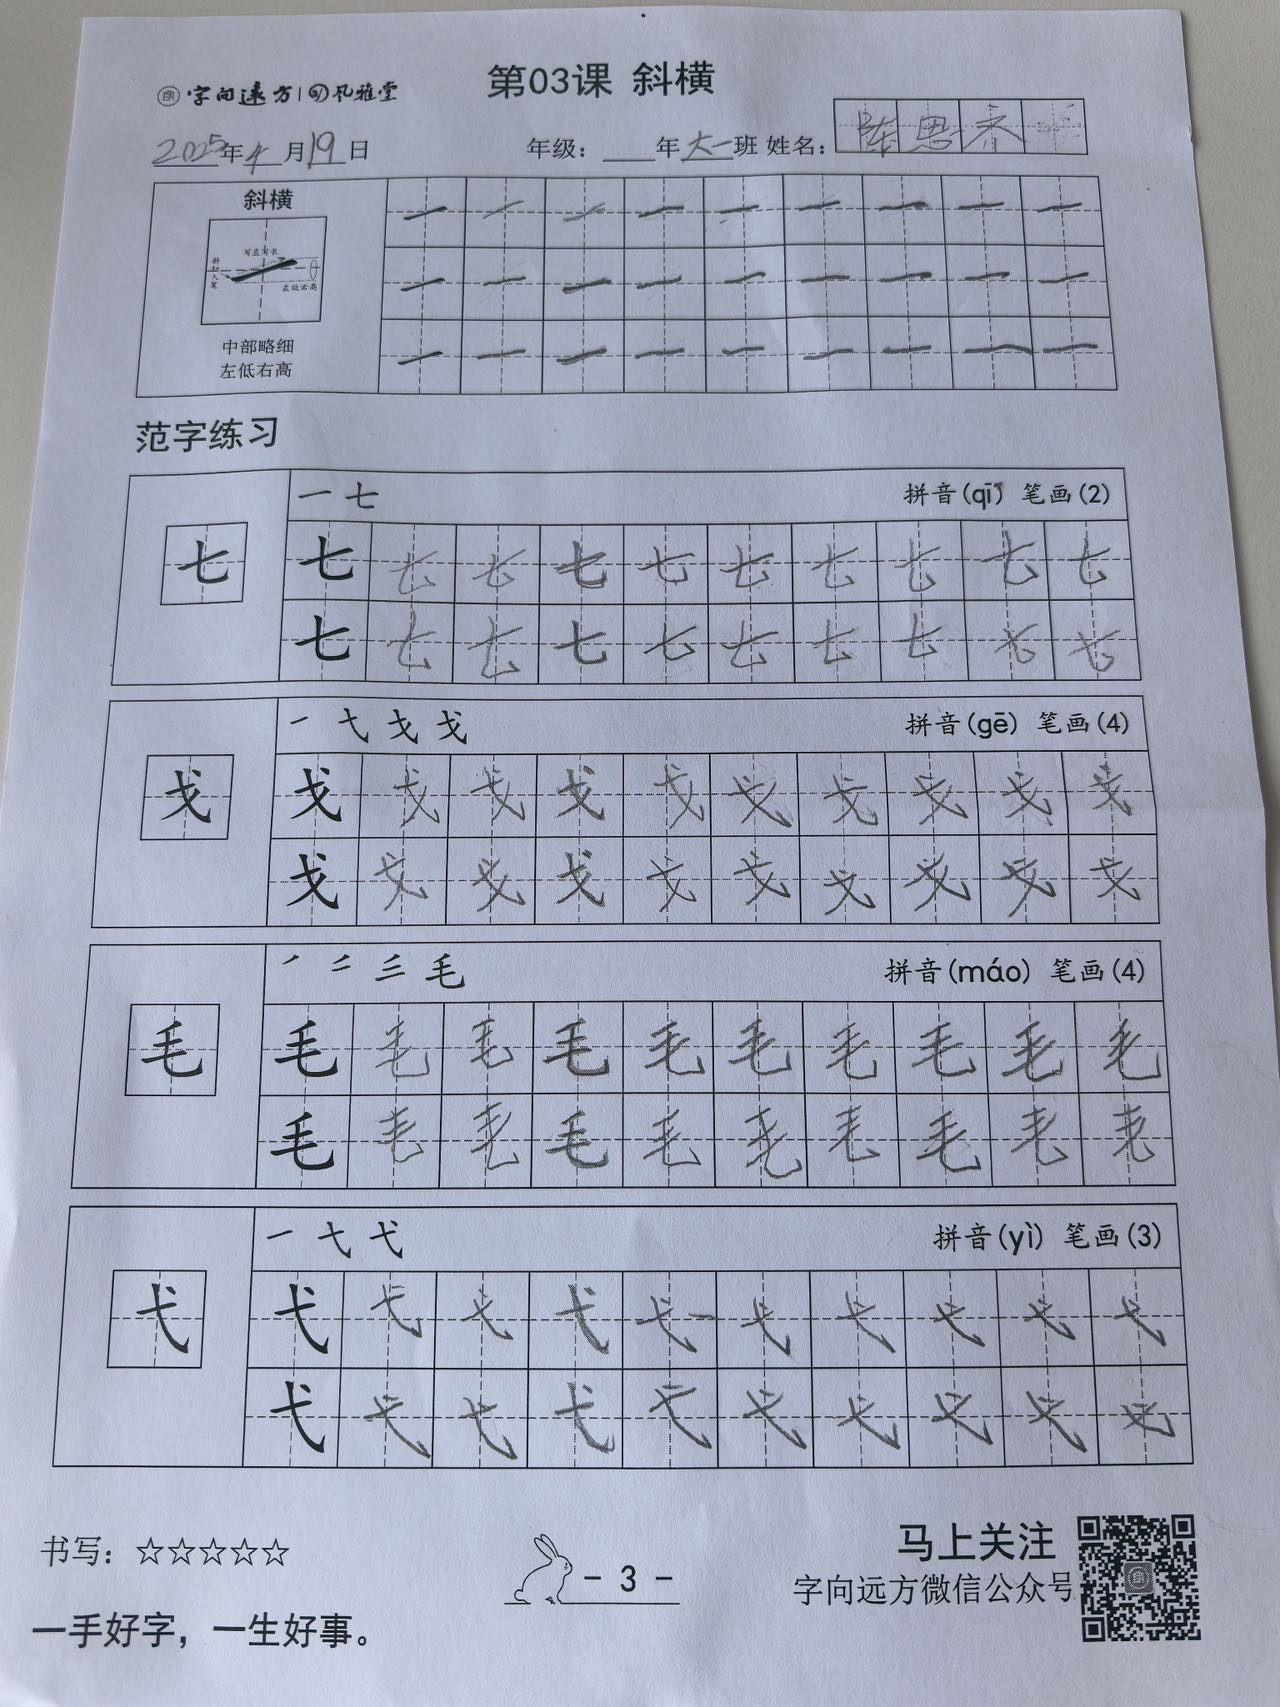 字向远方 风雅堂
第03课 斜横
2025年4月19日 年级：年大一班 姓名：陈思齐
斜横
写直写长
斜切入笔
左低右高
中部略细
左低右高
范字练习
一 七 拼音(qī) 笔画(2)
七 七 七 七 七 七 七 七 七 七 七
七 七 七 七 七 七 七 七 七 七
一 弋 戈 戈 拼音(gē) 笔画(4)
戈 戈 戈 戈 戈 戈 戈 戈 戈 戈 戈
戈 戈 戈 戈 戈 戈 戈 戈 戈 戈
㇒ 二 三 毛 拼音(máo) 笔画(4)
毛 毛 毛 毛 毛 毛 毛 毛 毛 毛 毛
毛 毛 毛 毛 毛 毛 毛 毛 毛 毛
一 弋 弋 拼音(yì) 笔画(3)
弋 弋 弋 弋 弋 弋 弋 弋 弋 弋 弋
弋 弋 弋 弋 弋 弋 弋 弋 弋 弋
书写：☆☆☆☆☆
- 3 -
马上关注
字向远方微信公众号
一手好字，一生好事。